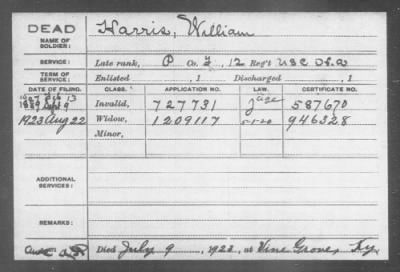 DEAD
NAME OF SOLDIER: Harris, William
SERVICE: Late rank, P Co. I, 12 Reg't U.S.C. H.A.
TERM OF SERVICE: Enlisted , 1 Discharged , 1
DATE OF FILING. CLASS. APPLICATION NO. LAW. CERTIFICATE NO.
Invalid, 727731 587670
1923 Aug 22 Widow, 1209117 5-1-20 946328
Minor,
ADDITIONAL SERVICES:
REMARKS:
Died July 9, 1923, at Vine Grove, Ky.